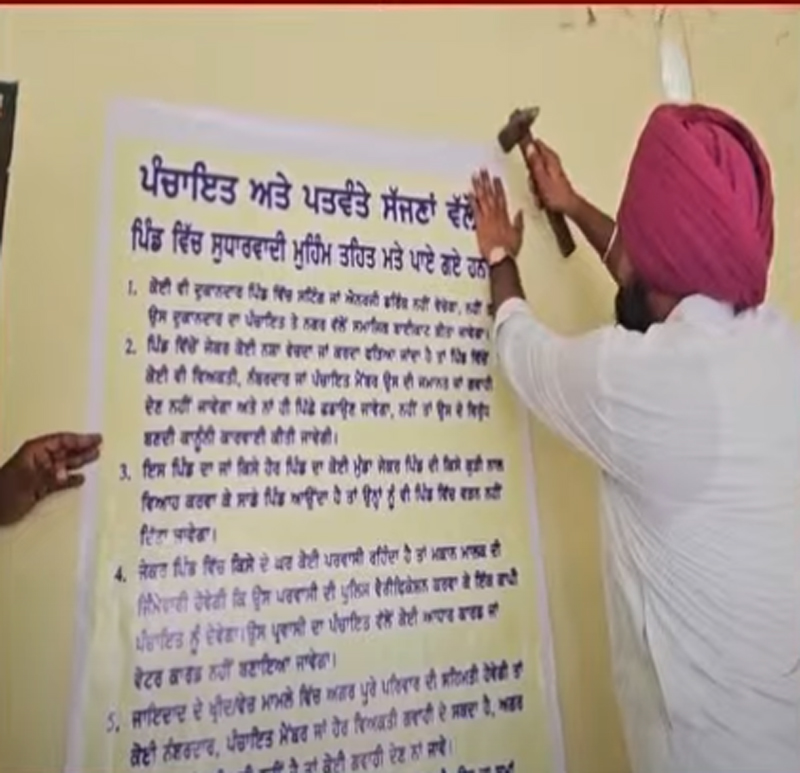 ਪੰਚਾਇਤ ਅਤੇ ਪਤਵੰਤੇ ਸੱਜਣਾਂ ਵੱਲੋਂ
ਪਿੰਡ ਵਿੱਚ ਸੁਧਾਰਵਾਦੀ ਮੁਹਿੰਮ ਤਹਿਤ ਮਤੇ ਪਾਏ ਗਏ ਹਨ
1. ਕੋਈ ਵੀ ਦੁਕਾਨਦਾਰ ਪਿੰਡ ਵਿੱਚ ਸਟਿੰਗ ਜਾਂ ਐਨਰਜੀ ਡਰਿੰਕ ਨਹੀਂ ਵੇਚੇਗਾ, ਨਹੀਂ
ਉਸ ਦੁਕਾਨਦਾਰ ਦਾ ਪੰਚਾਇਤ ਤੇ ਨਗਰ ਵੱਲੋਂ ਸਮਾਜਿਕ ਬਾਈਕਾਟ ਕੀਤਾ ਜਾਵੇਗਾ।
2. ਪਿੰਡ ਵਿੱਚੋਂ ਜੇਕਰ ਕੋਈ ਨਸ਼ਾ ਵੇਚਦਾ ਜਾਂ ਕਰਦਾ ਫੜਿਆ ਜਾਂਦਾ ਹੈ ਤਾਂ ਪਿੰਡ ਵਿੱਚੋਂ
ਕੋਈ ਵੀ ਵਿਅਕਤੀ, ਨੰਬਰਦਾਰ ਜਾਂ ਪੰਚਾਇਤ ਮੈਂਬਰ ਉਸ ਦੀ ਜਮਾਨਤ ਜਾਂ ਗਵਾਹੀ
ਦੇਣ ਨਹੀਂ ਜਾਵੇਗਾ ਅਤੇ ਨਾਂ ਹੀ ਪਿੱਛੇ ਛਡਾਉਣ ਜਾਵੇਗਾ, ਨਹੀਂ ਤਾਂ ਉਸ ਦੇ ਵਿਰੁੱਧ
ਬਣਦੀ ਕਾਨੂੰਨੀ ਕਾਰਵਾਈ ਕੀਤੀ ਜਾਵੇਗੀ।
3. ਇਸ ਪਿੰਡ ਦਾ ਜਾਂ ਕਿਸੇ ਹੋਰ ਪਿੰਡ ਦਾ ਕੋਈ ਮੁੰਡਾ ਜੇਕਰ ਪਿੰਡ ਦੀ ਕਿਸੇ ਕੁੜੀ ਨਾਲ
ਵਿਆਹ ਕਰਵਾ ਕੇ ਸਾਡੇ ਪਿੰਡ ਆਉਂਦਾ ਹੈ ਤਾਂ ਉਨ੍ਹਾਂ ਨੂੰ ਵੀ ਪਿੰਡ ਵਿੱਚ ਵੜਨ ਨਹੀਂ
ਦਿੱਤਾ ਜਾਵੇਗਾ।
4. ਜੇਕਰ ਪਿੰਡ ਵਿੱਚ ਕਿਸੇ ਦੇ ਘਰ ਕੋਈ ਪਰਵਾਸੀ ਰਹਿੰਦਾ ਹੈ ਤਾਂ ਮਕਾਨ ਮਾਲਕ ਦੀ
ਜਿੰਮੇਵਾਰੀ ਹੋਵੇਗੀ ਕਿ ਉਸ ਪਰਵਾਸੀ ਦੀ ਪੁਲਿਸ ਵੈਰੀਫਿਕੇਸ਼ਨ ਕਰਵਾ ਕੇ ਇੱਕ ਕਾਪੀ
ਪੰਚਾਇਤ ਨੂੰ ਦੇਵੇਗਾ।ਉਸ ਪ੍ਰਵਾਸੀ ਦਾ ਪੰਚਾਇਤ ਵੱਲੋਂ ਕੋਈ ਆਧਾਰ ਕਾਰਡ ਜਾਂ
ਵੋਟਰ ਕਾਰਡ ਨਹੀਂ ਬਣਾਇਆ ਜਾਵੇਗਾ।
5. ਜਾਇਦਾਦ ਦੇ ਖ੍ਰੀਦ/ਵੇਚ ਮਾਮਲੇ ਵਿੱਚ ਅਗਰ ਪੂਰੇ ਪਰਿਵਾਰ ਦੀ ਸਹਿਮਤੀ ਹੋਵੇਗੀ ਤਾਂ
ਕੋਈ ਨੰਬਰਦਾਰ, ਪੰਚਾਇਤ ਮੈਂਬਰ ਜਾਂ ਹੋਰ ਵਿਅਕਤੀ ਗਵਾਹੀ ਦੇ ਸਕਦਾ ਹੈ, ਅਗਰ
ਹੈ ਤਾਂ ਕੋਈ ਗਵਾਹੀ ਦੇਣ ਨਾਂ ਜਾਵੇ।